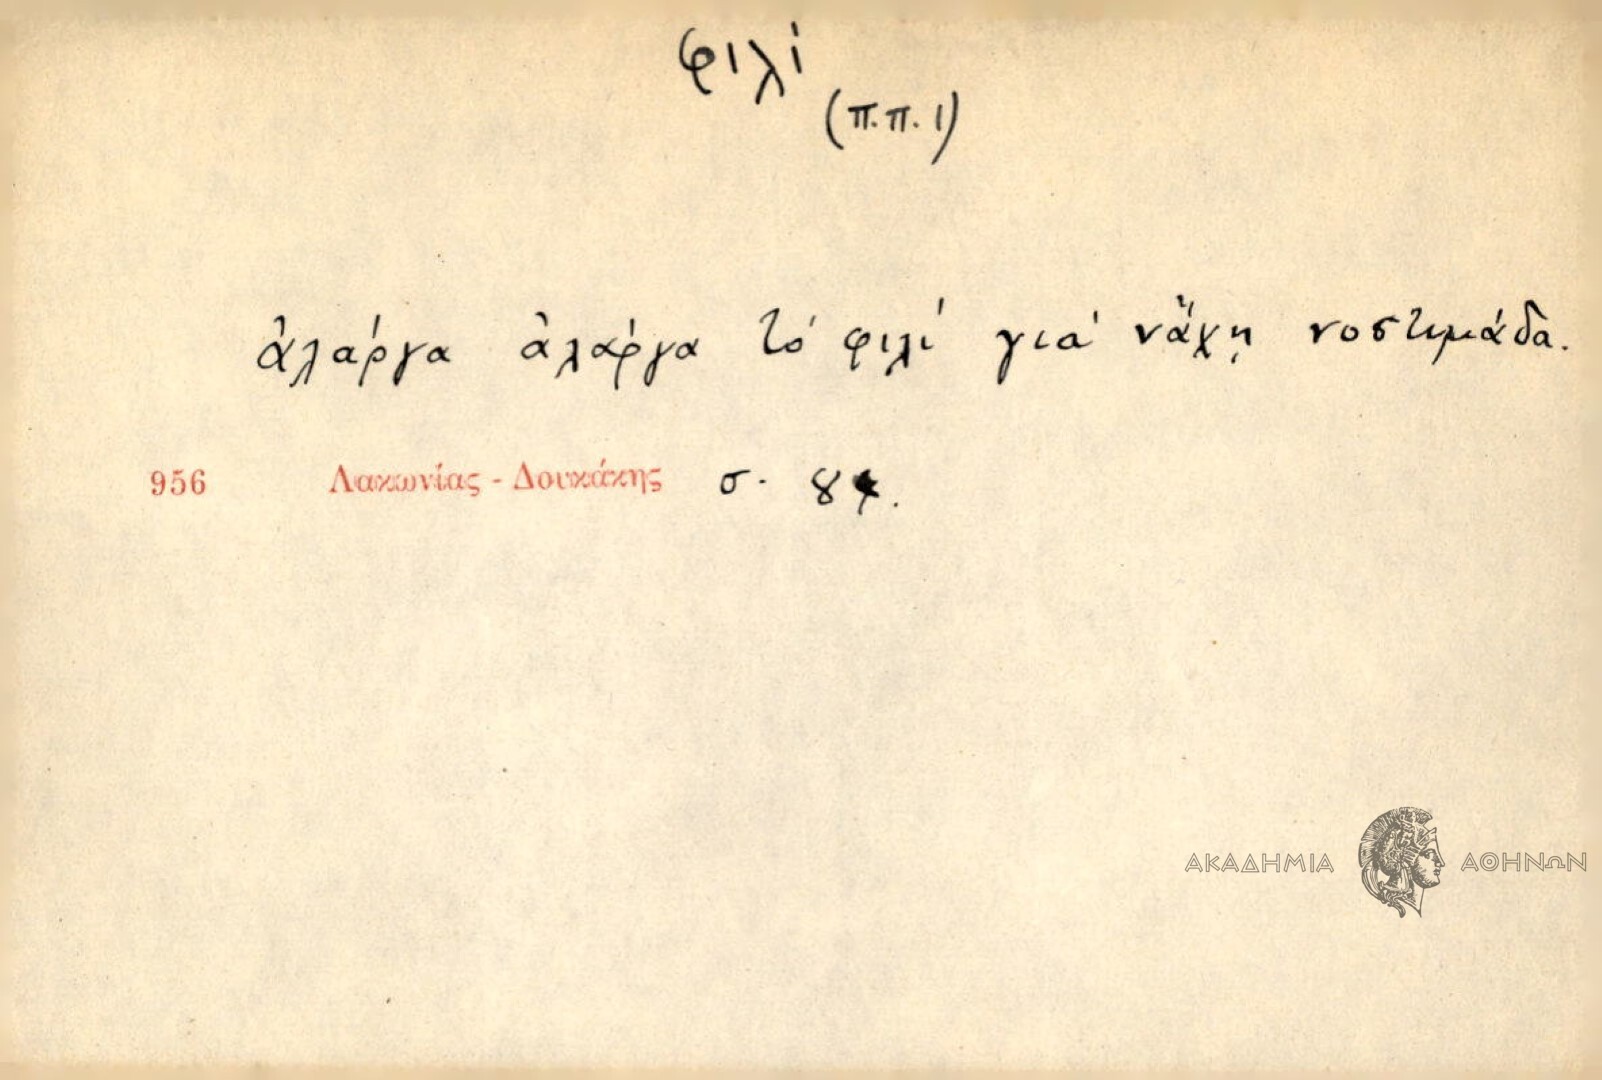 φιλί
(π.π. 1)
ἀλάργα ἀλάργα τό φιλί γιά νἄχῃ νοστιμάδα.
956 Λακωνίας - Δουκάκης σ.
ΑΚΑΔΗΜΙΑ ΑΘΗΝΩΝ